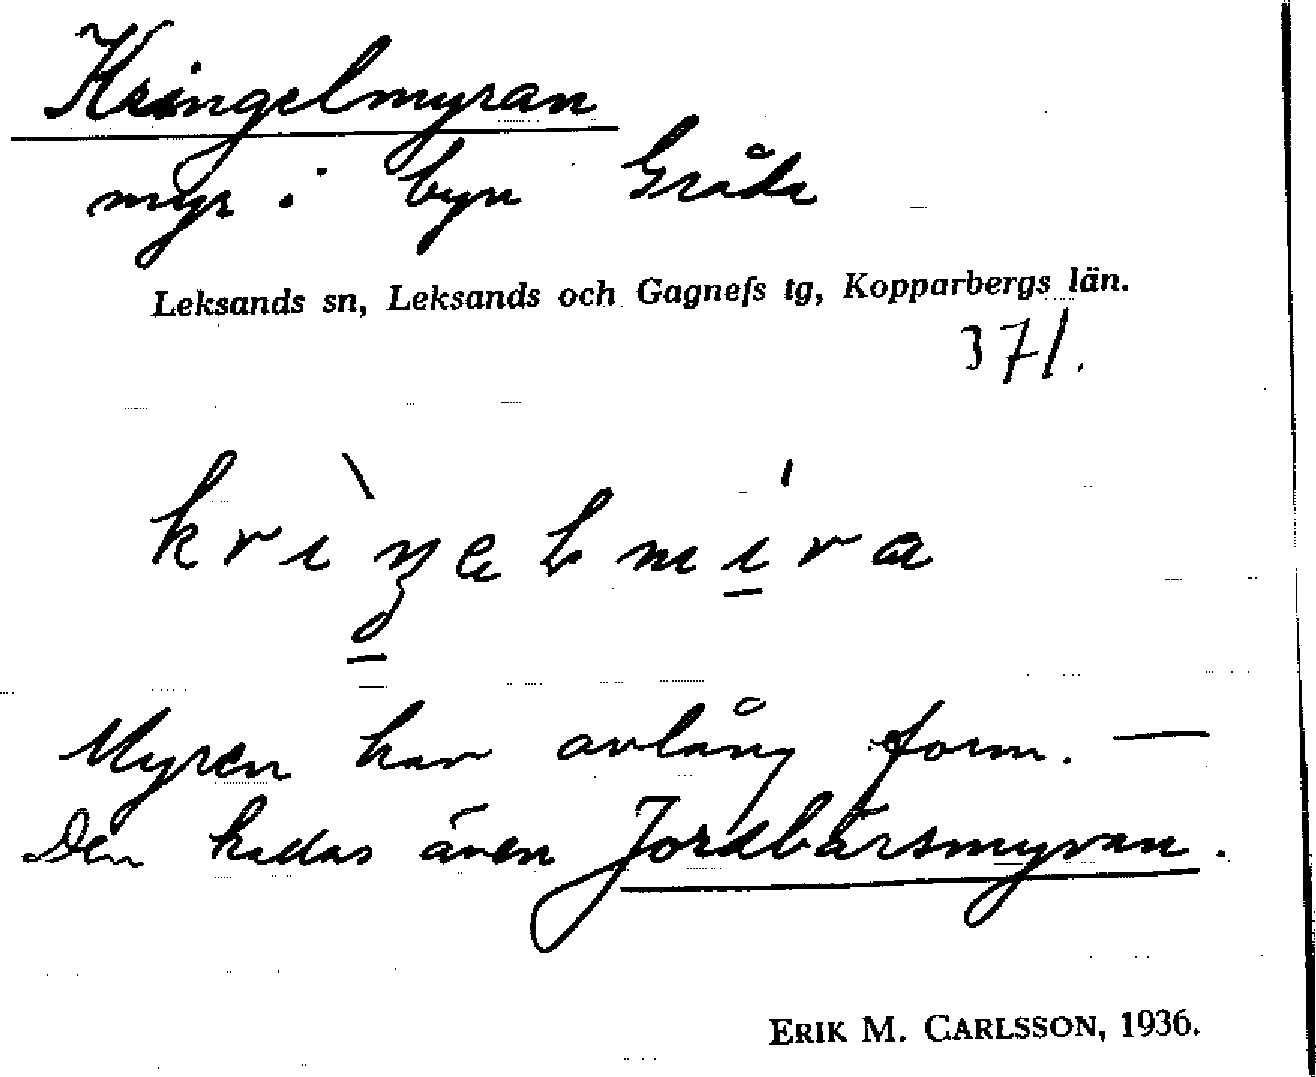 Kringelmyran
myr i byn Gråda
Leksands sn, Leksands och Gagnefs tg, Kopparbergs län.
371.
Myren har avlång form. —
Den kallas även Jordbärsmyran.
ERIK M. CARLSSON, 1936.